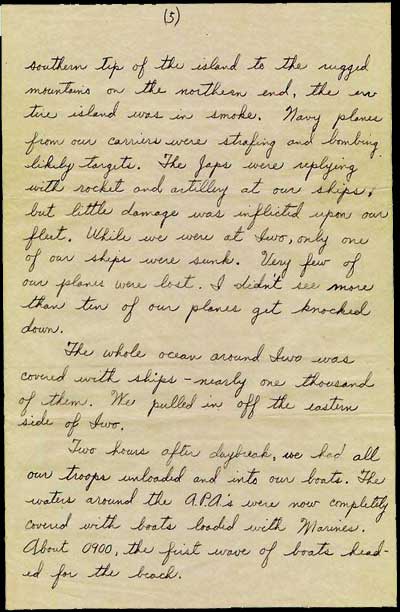 (5)
southern tip of the island to the rugged
mountains on the northern end, the en-
tire island was in smoke. Navy planes
from our carriers were strafing and bombing
likely targets. The Japs were replying
with rocket and artillery at our ships,
but little damage was inflicted upon our
fleet. While we were at Iwo, only one
of our ships were sunk. Very few of
our planes were lost. I didn't see more
than ten of our planes get knocked
down.
The whole ocean around Iwo was
covered with ships - nearly one thousand
of them. We pulled in off the eastern
side of Iwo.
Two hours after daybreak, we had all
our troops unloaded and into our boats. The
waters around the A.P.A.'s were now completely
covered with boats loaded with Marines.
About 0900, the first wave of boats head-
ed for the beach.